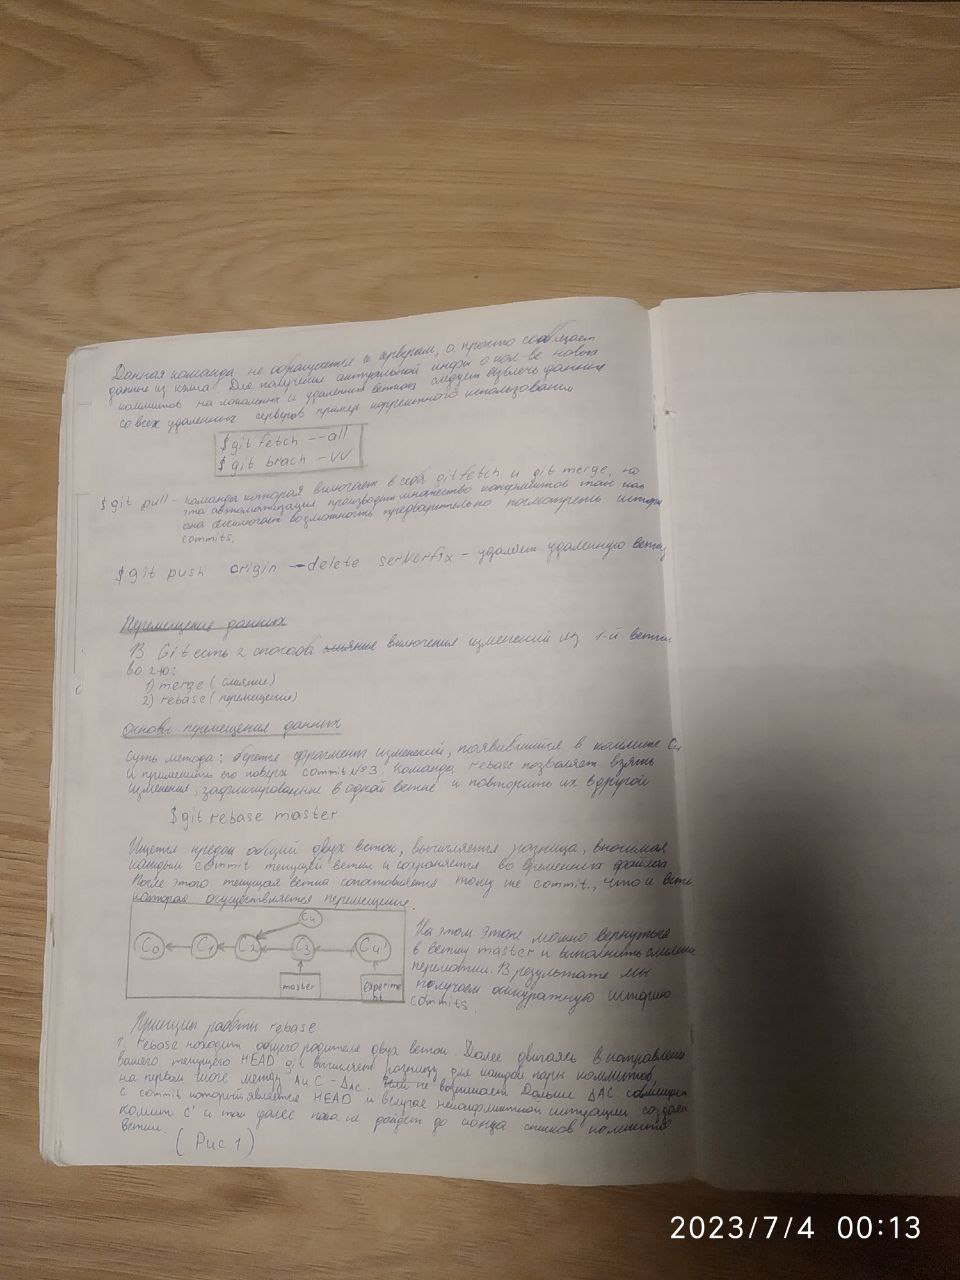 Данная команда не обращается к серверам, а просто сообщает
данные из кэша. Для получения актуальной инфы о кол-ве новых
коммитов на локальных и удаленных ветках следует извлечь данные
со всех удаленных серверов пример корректного использования
$git fetch --all
$ git brach -vv
$git pull - команда которая включает в себя git fetch и git merge, но
эта автоматизация производит множество конфликтов так как
она исключает возможность предварительно посмотреть историю
commits.
$git push origin --delete serverfix - удаляет удаленную ветку
Перемещение данных
В Git есть 2 способа слияние включения изменений из 1-й ветки
во 2-ю:
1) merge (слияние)
2) rebase (перемещение)
Основы перемещения данных
Суть метода: берется фрагменты изменений, появившийся в коммите C4
и применить его поверх commit №3. Команда rebase позволяет взять
изменения, зафиксированные в одной ветке и повторить их в другой
$git rebase master
Ищется предок общий двух веток, вычисляется разница, вносимая
каждым commit текущей ветки и сохраняется во временных файлах
После этого текущая ветка сопоставляется тому же commit, что и ветк
которая осуществляется перемещение.
C4
C0 C1 C2 C3 C4'
master experime
nt
На этом этапе можно вернуться
в ветку master и выполнить слияние
перемотки. В результате мы
получаем аккуратную историю
commits.
Принцип работы rebase
1. rebase находит общего родителя двух веток. Далее двигаясь в направлении
вашего текущего HEAD git вычисляет разницу для каждой пары коммитов,
на первом шаге между A и C - ΔAC. Если не возникает Дальше ΔAC
с commit который является HEAD и в случае неконфликтной ситуации создает
коммит C' и так далее пока не дойдет до конца списков коммитов
ветки.
(Рис 1)
2023/7/4 00:13